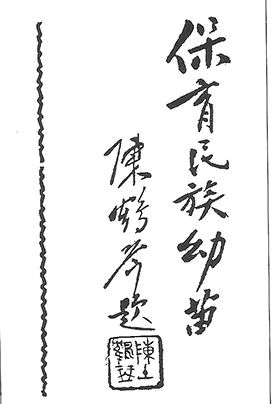 保育民族幼苗
陳鶴琴題
陳
鶴琴